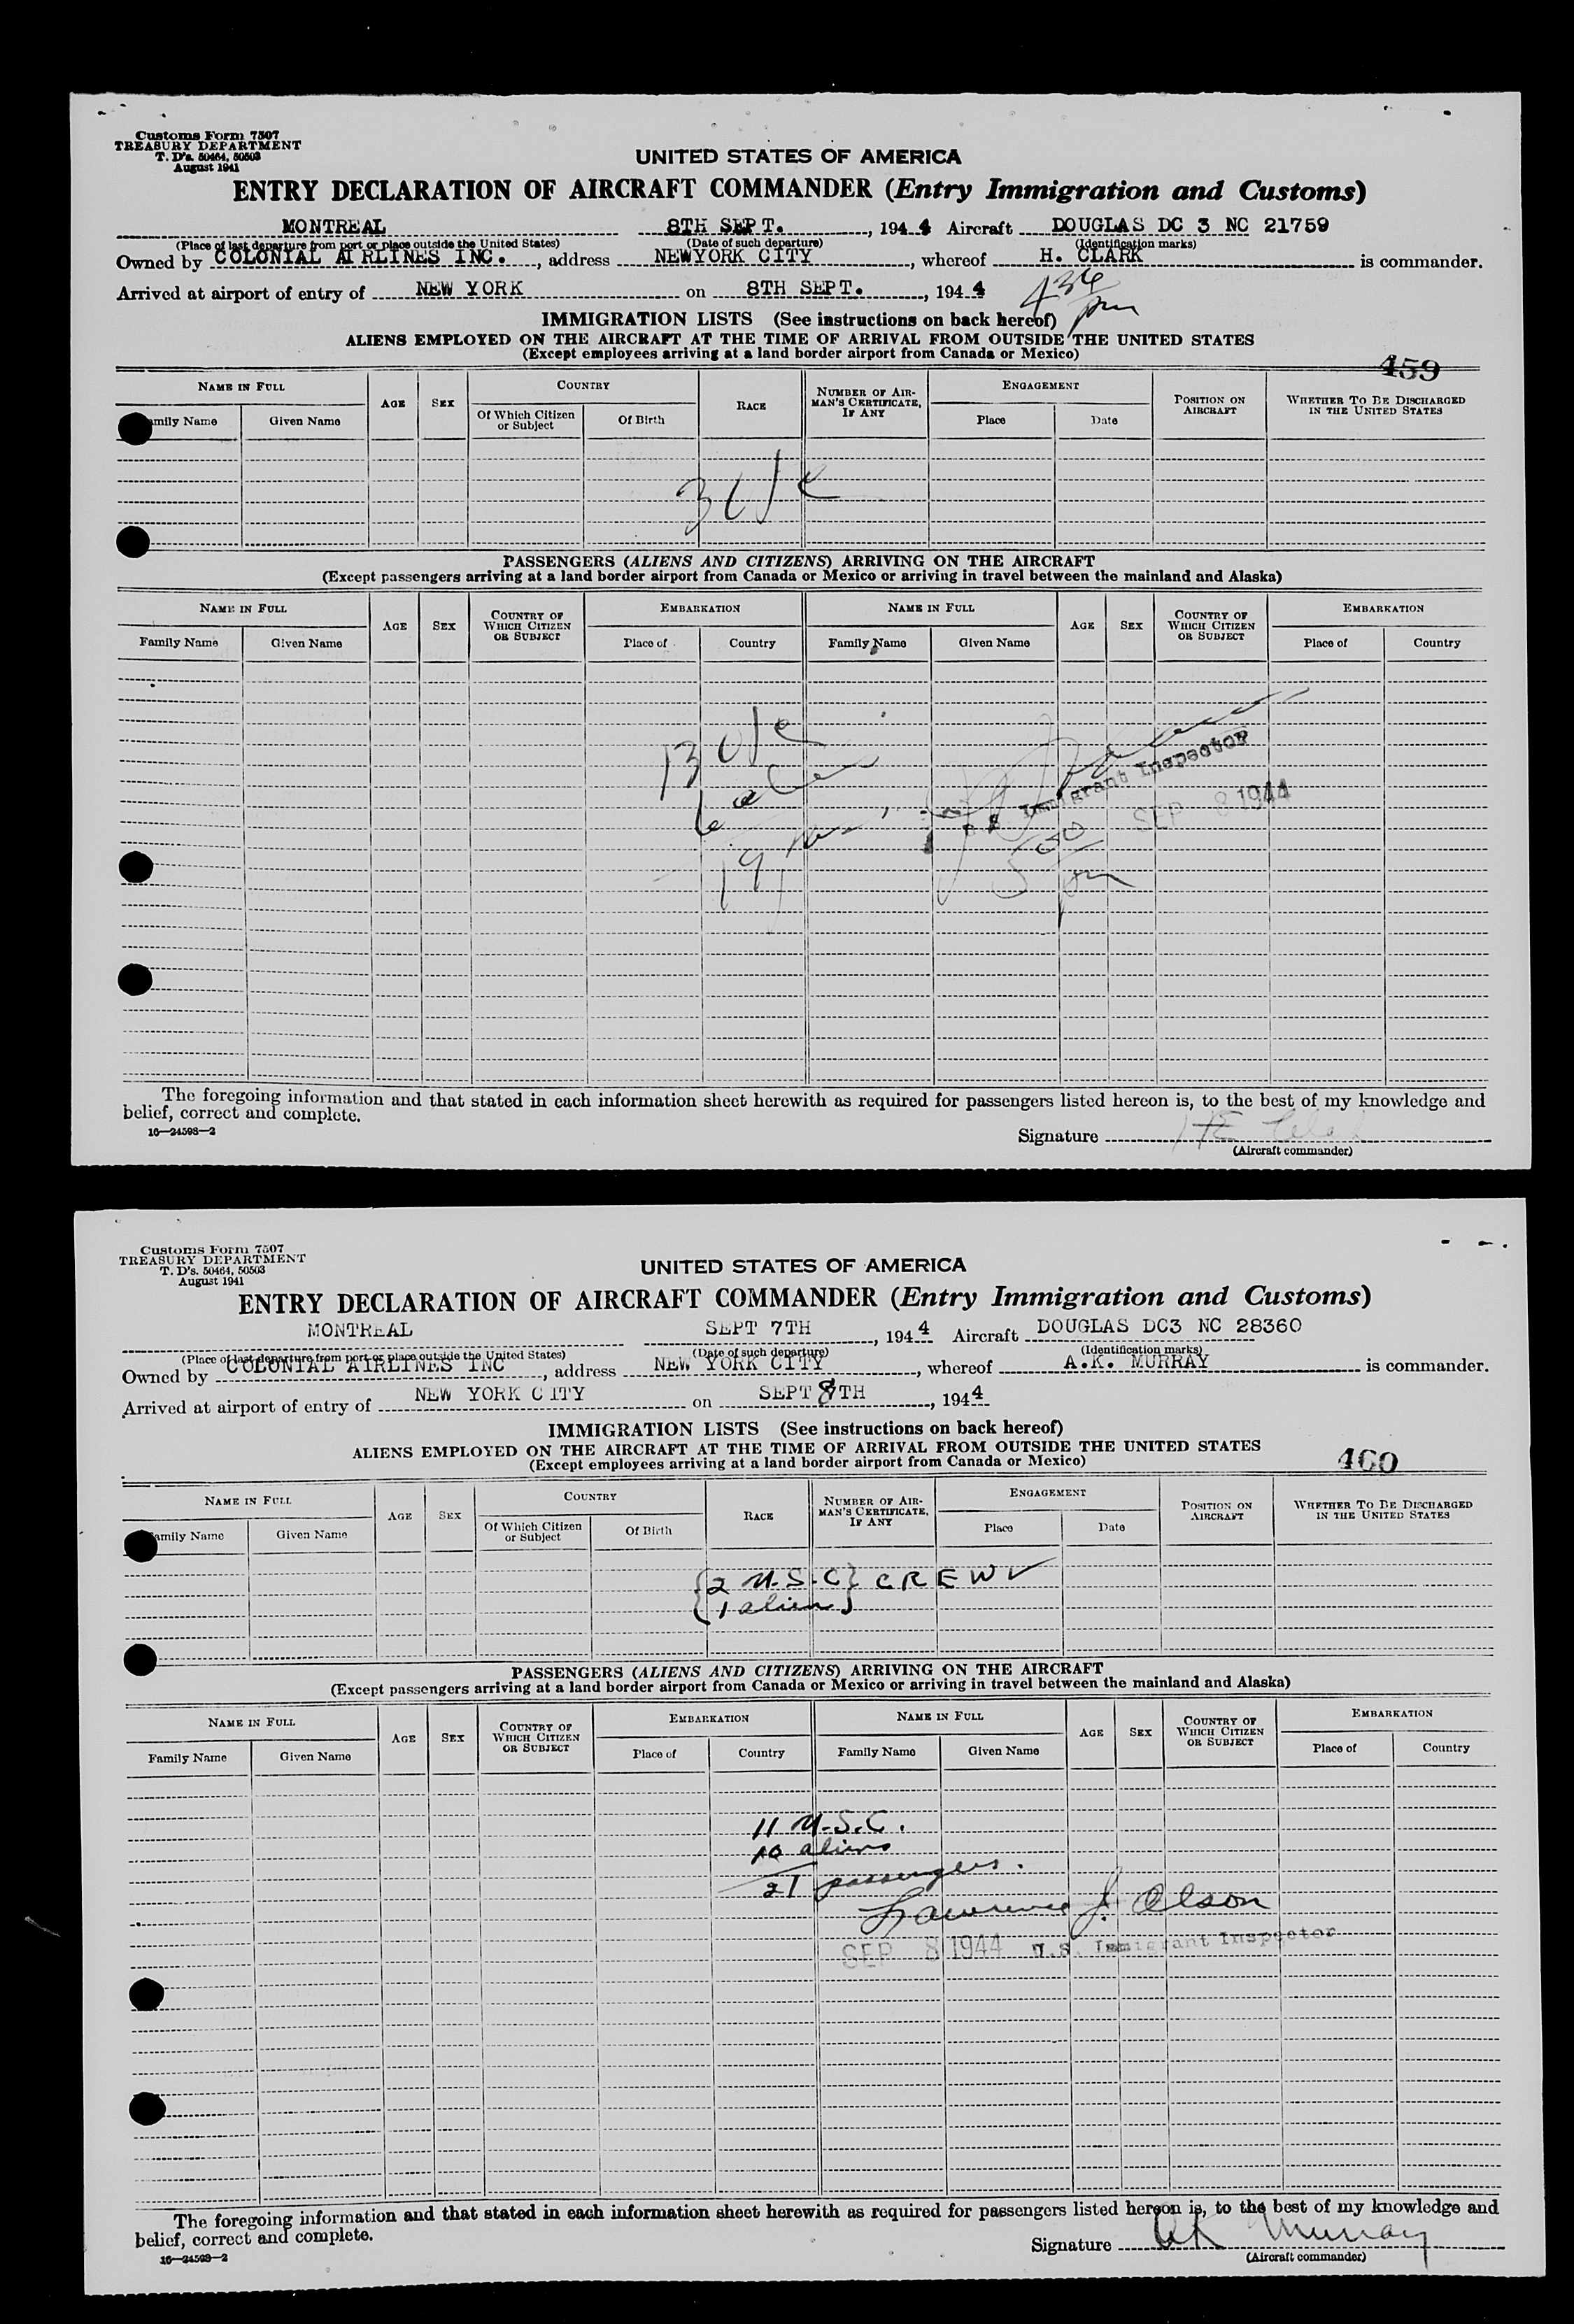 Customs Form 7507
TREASURY DEPARTMENT
T. D's. 50464, 50503
August 1941
UNITED STATES OF AMERICA
ENTRY DECLARATION OF AIRCRAFT COMMANDER (Entry Immigration and Customs)
MONTREAL 8TH SEPT., 1944 Aircraft DOUGLAS DC 3 NC 21759
(Place of last departure from port or place outside the United States) (Date of such departure) (Identification marks)
Owned by COLONIAL AIRLINES INC., address NEWYORK CITY, whereof H. CLARK is commander.
Arrived at airport of entry of NEW YORK on 8TH SEPT., 1944 434 pm
IMMIGRATION LISTS (See instructions on back hereof)
ALIENS EMPLOYED ON THE AIRCRAFT AT THE TIME OF ARRIVAL FROM OUTSIDE THE UNITED STATES
(Except employees arriving at a land border airport from Canada or Mexico)
459
NAME IN FULL AGE SEX COUNTRY RACE NUMBER OF AIRMAN'S CERTIFICATE, IF ANY ENGAGEMENT POSITION ON AIRCRAFT WHETHER TO BE DISCHARGED IN THE UNITED STATES
mily Name Given Name Of Which Citizen or Subject Of Birth Place Date
PASSENGERS (ALIENS AND CITIZENS) ARRIVING ON THE AIRCRAFT
(Except passengers arriving at a land border airport from Canada or Mexico or arriving in travel between the mainland and Alaska)
NAME IN FULL AGE SEX COUNTRY OF WHICH CITIZEN OR SUBJECT EMBARKATION NAME IN FULL AGE SEX COUNTRY OF WHICH CITIZEN OR SUBJECT EMBARKATION
Family Name Given Name Place of Country Family Name Given Name Place of Country
Immigrant Inspector
SEP 8 1944
19
500 pm
The foregoing information and that stated in each information sheet herewith as required for passengers listed hereon is, to the best of my knowledge and
belief, correct and complete.
16—24598—2
Signature
(Aircraft commander)
Customs Form 7507
TREASURY DEPARTMENT
T. D's. 50464, 50503
August 1941
UNITED STATES OF AMERICA
ENTRY DECLARATION OF AIRCRAFT COMMANDER (Entry Immigration and Customs)
MONTREAL SEPT 7TH, 1944 Aircraft DOUGLAS DC3 NC 28360
(Place of last departure from port or place outside the United States) (Date of such departure) (Identification marks)
Owned by COLONIAL AIRLINES INC, address NEW YORK CITY, whereof A.K. MURRAY is commander.
Arrived at airport of entry of NEW YORK CITY on SEPT 8TH, 1944
IMMIGRATION LISTS (See instructions on back hereof)
ALIENS EMPLOYED ON THE AIRCRAFT AT THE TIME OF ARRIVAL FROM OUTSIDE THE UNITED STATES
(Except employees arriving at a land border airport from Canada or Mexico)
460
NAME IN FULL AGE SEX COUNTRY RACE NUMBER OF AIRMAN'S CERTIFICATE, IF ANY ENGAGEMENT POSITION ON AIRCRAFT WHETHER TO BE DISCHARGED IN THE UNITED STATES
amily Name Given Name Of Which Citizen or Subject Of Birth Place Date
2 U.S.C CREW
1 alien
PASSENGERS (ALIENS AND CITIZENS) ARRIVING ON THE AIRCRAFT
(Except passengers arriving at a land border airport from Canada or Mexico or arriving in travel between the mainland and Alaska)
NAME IN FULL AGE SEX COUNTRY OF WHICH CITIZEN OR SUBJECT EMBARKATION NAME IN FULL AGE SEX COUNTRY OF WHICH CITIZEN OR SUBJECT EMBARKATION
Family Name Given Name Place of Country Family Name Given Name Place of Country
11 U.S.C.
10 aliens
21 passengers.
Lawrence J. Olson
SEP 8 1944 U.S. Immigrant Inspector
The foregoing information and that stated in each information sheet herewith as required for passengers listed hereon is, to the best of my knowledge and
belief, correct and complete.
16—24598—2
Signature AK Murray
(Aircraft commander)